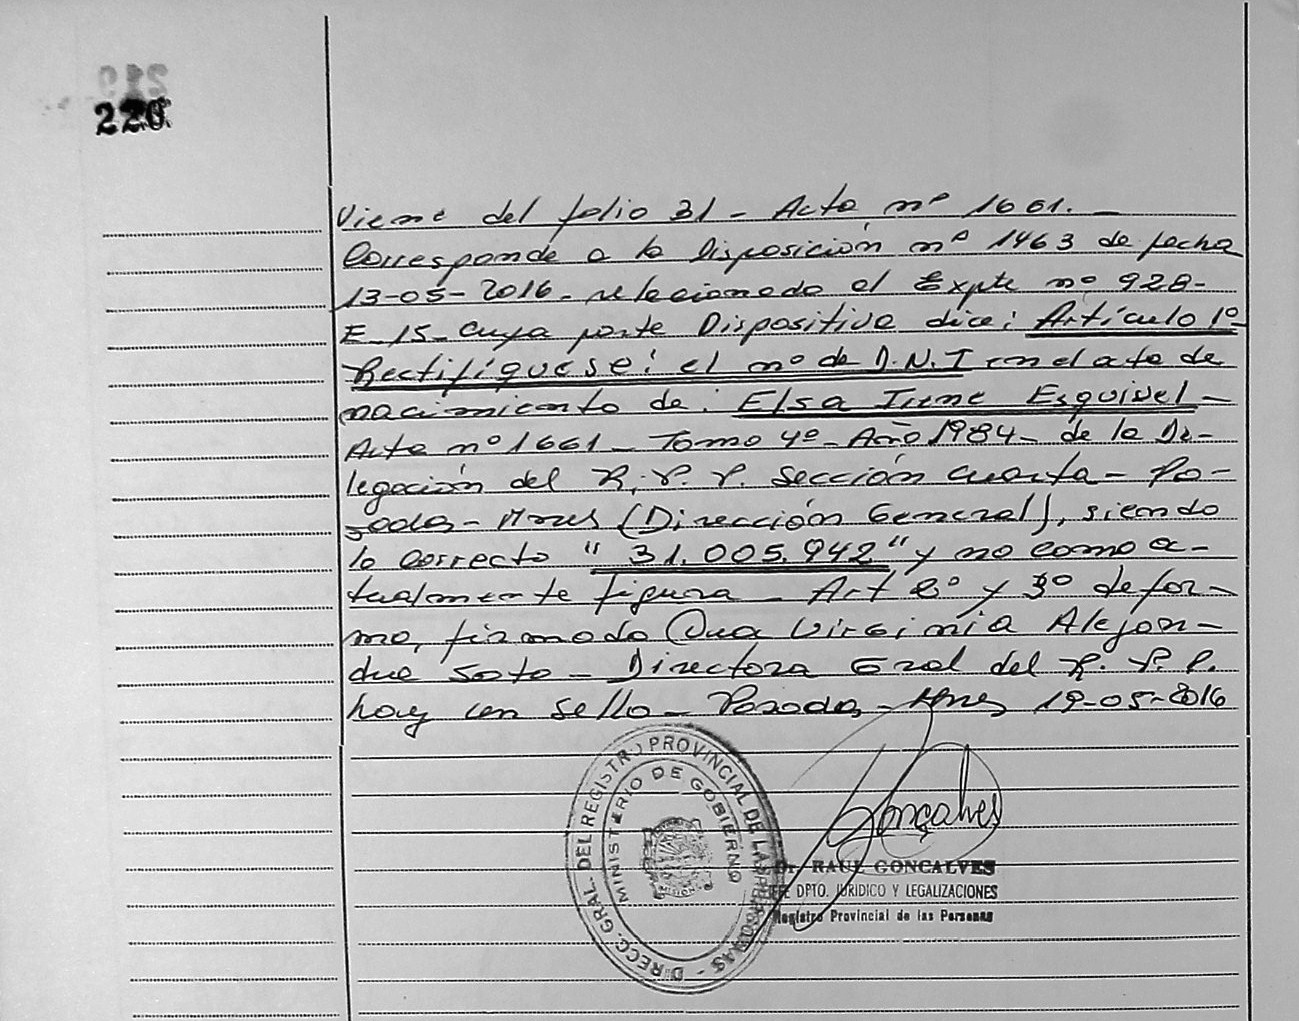 219
220
Viene del folio 31 - Acta nº 1661. -
Corresponde a la Disposición nº 1463 de fecha
13-05-2016- relacionado al Expte nº 928-
E-15- cuya parte Dispositiva dice: Artículo 1º
Rectifíquese: el nº de D.N.I en el acta de
nacimiento de: Elsa Irene Esquivel -
Acta nº 1661 - Tomo 4º - Año 1984 - de la De-
legación del R. P. P. Sección cuarta - Po-
sadas - Mnes (Dirección General), siendo
lo correcto "31.005.942" y no como a-
tualmente figura - Art 2º y 3º de for-
ma, firmado Dra Virginia Alejan-
dra Soto - Directora Gral del R. P. P.
hay un sello - Posadas - Mnes 19-05-2016
DIRECC. GRAL. DEL REGISTRO PROVINCIAL DE LAS PERSONAS -
MINISTERIO DE GOBIERNO
MISIONES
Gonçalves
Dr. RAUL GONCALVES
JEFE DPTO. JURIDICO Y LEGALIZACIONES
Registro Provincial de las Personas